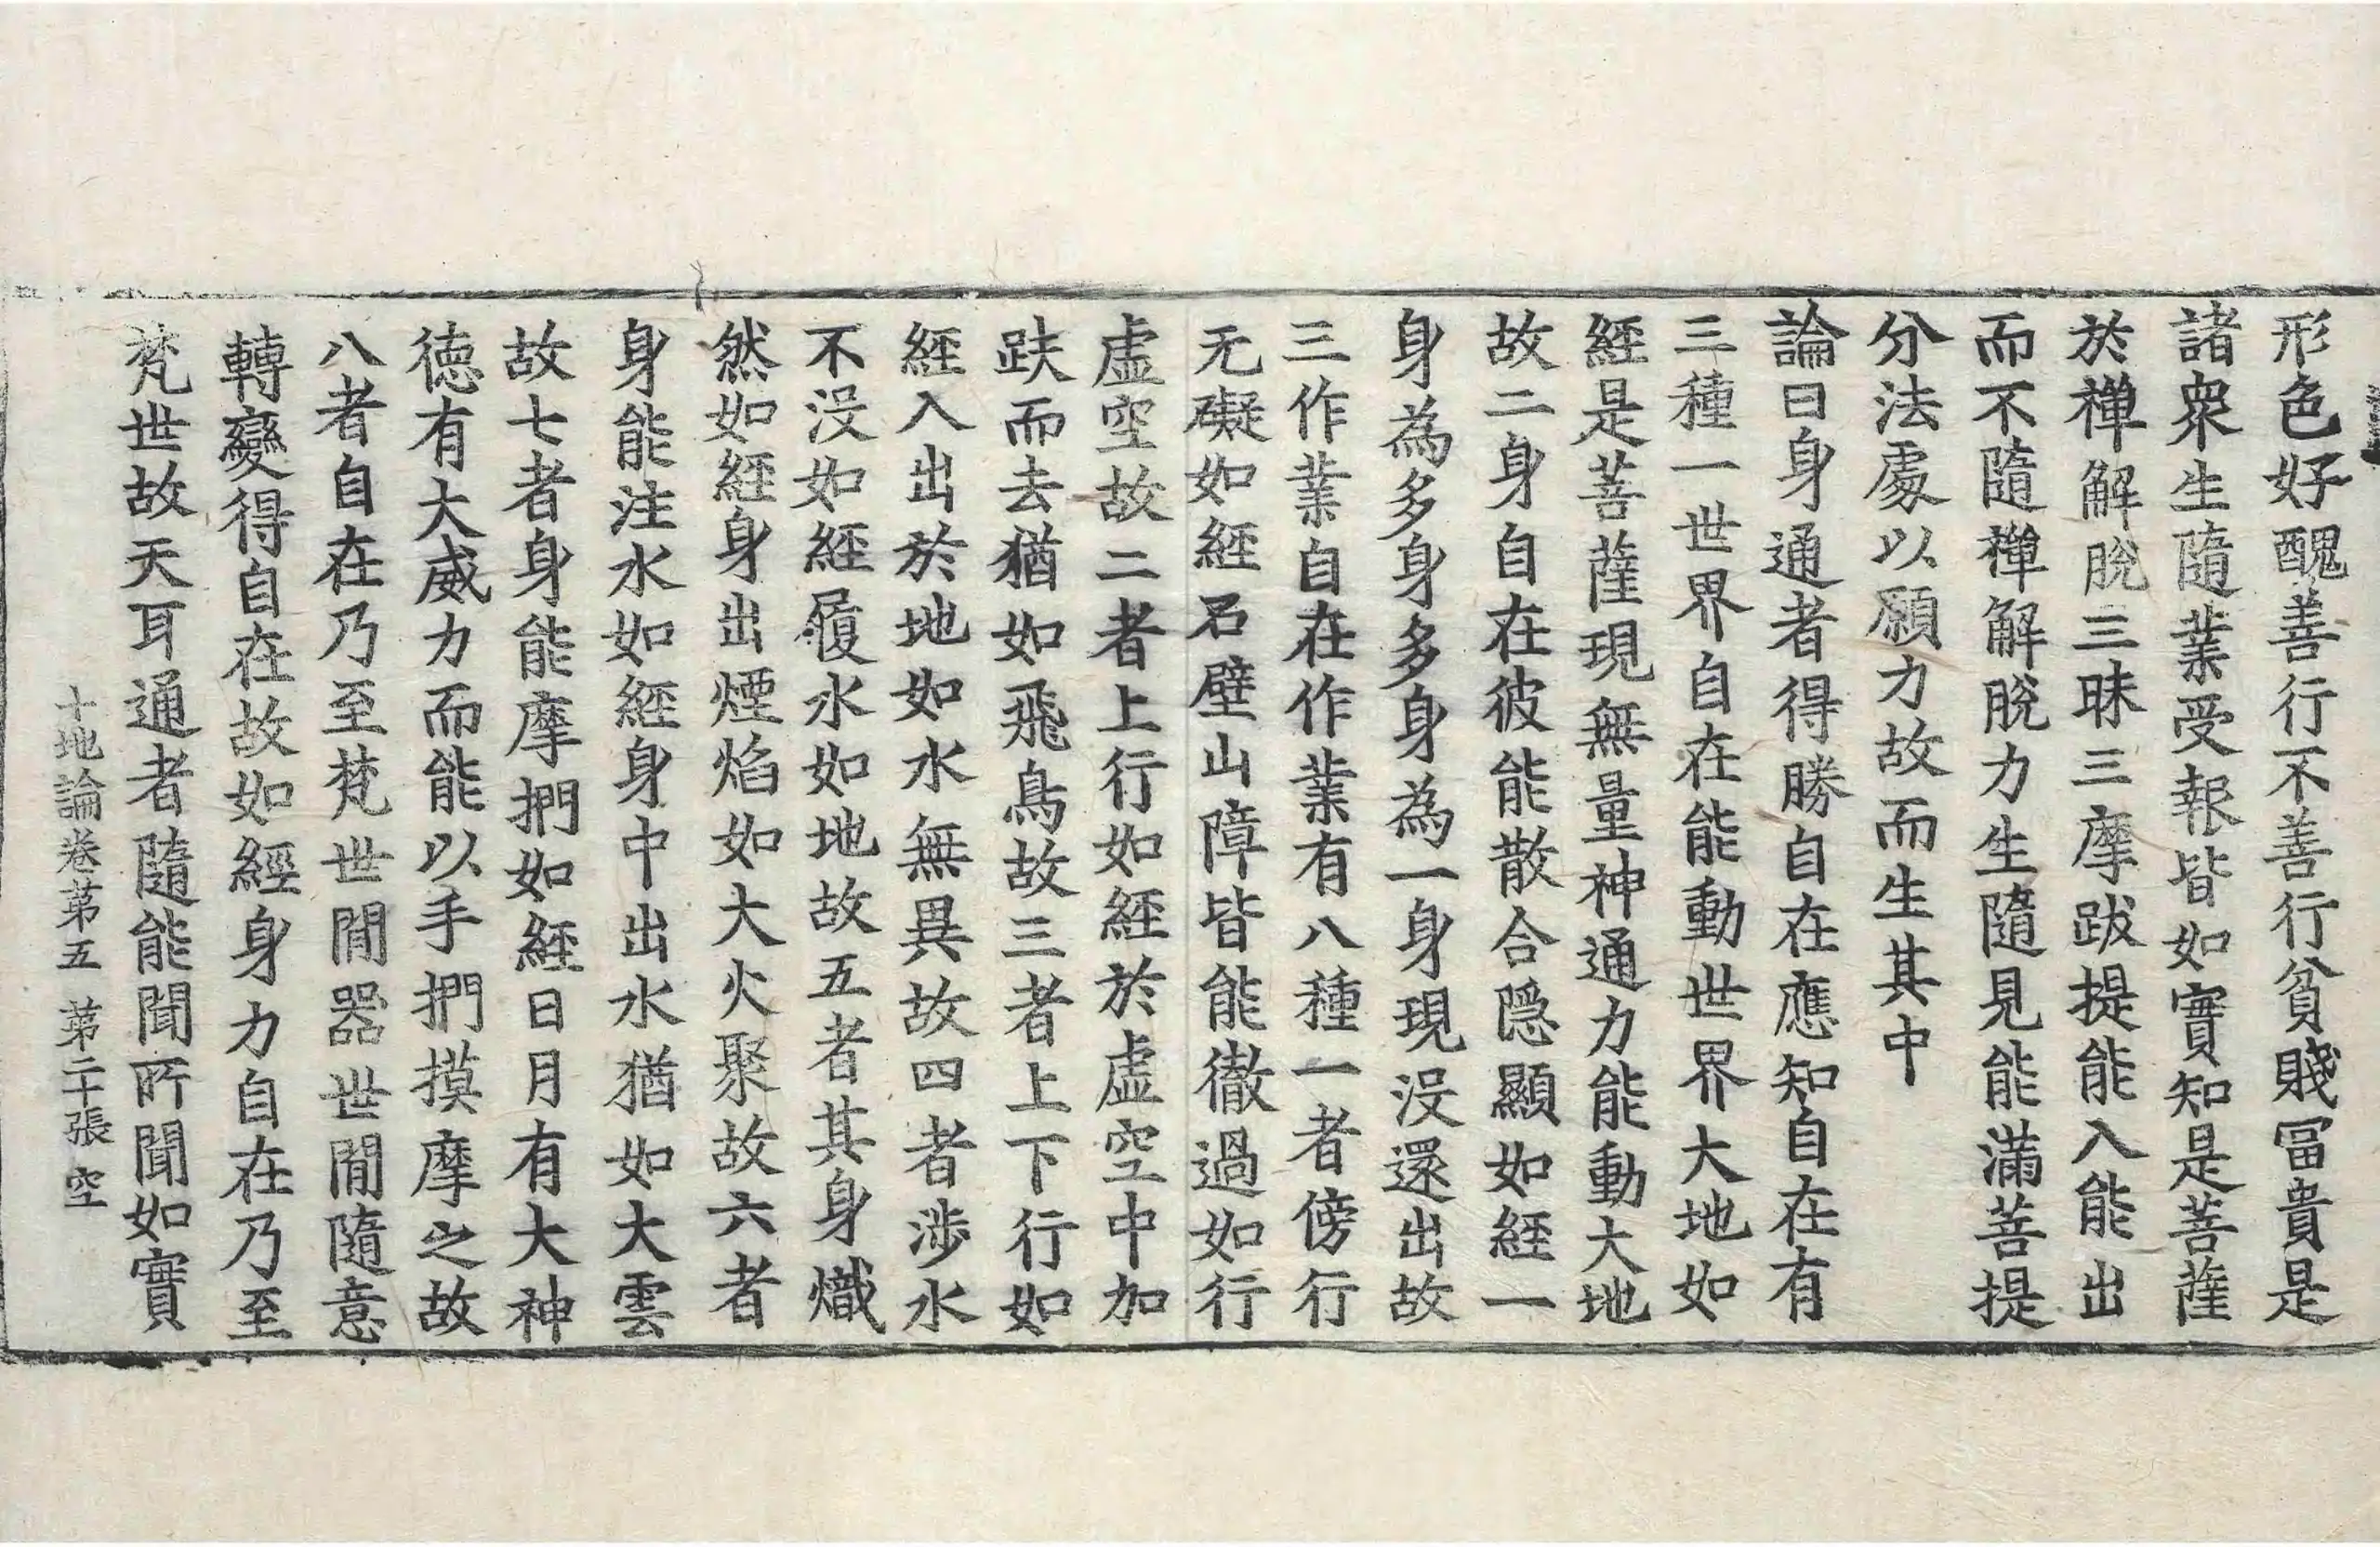 形色好醜善行不善行貧賤冨貴是
諸衆生隨業受報皆如實知是菩薩
於禪解脫三昧三摩跋提能入能出
而不隨禪解脫力生隨見能滿菩提
分法處以願力故而生其中
論曰身通者得勝自在應知自在有
三種一世界自在能動世界大地如
經是菩薩現無量神通力能動大地
故二身自在彼能散合隱顯如經一
身為多身多身為一身現沒還出故
三作業自在作業有八種一者傍行
无礙如經石壁山障皆能徹過如行
虛空故二者上行如經於虛空中加
趺而去猶如飛鳥故三者上下行如
經入出於地如水無異故四者涉水
不沒如經履水如地故五者其身熾
然如經身出煙焰如大火聚故六者
身能注水如經身中出水猶如大雲
故七者身能摩捫如經日月有大神
德有大威力而能以手捫摸摩之故
八者自在乃至梵世閒器世閒隨意
轉變得自在故如經身力自在乃至
梵世故天耳通者隨能聞所聞如實
十地論卷苐五 苐二十張 空